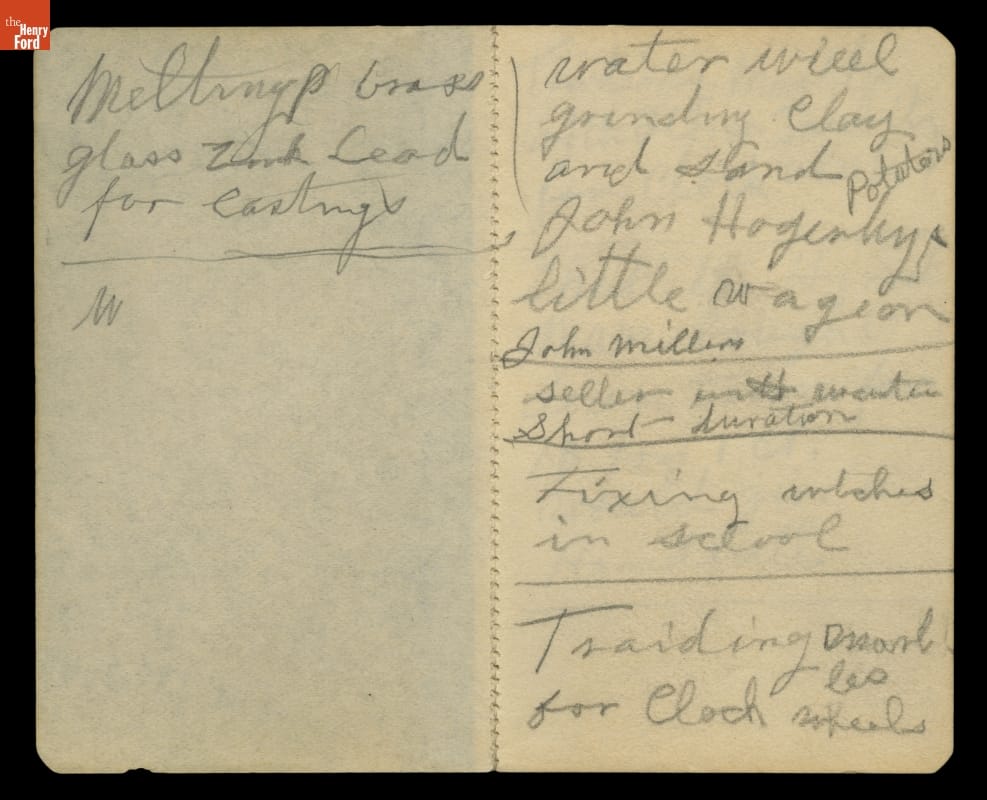 the
Henry
Ford
Meltingp brass
glass Zink Lead
for castings
W
water wieel
grinding Clay
and sand Potaters
John Hogenhys
little wageon
John millers
seller with
Short duration
Fixing wtches
in scloool
Traiding marb
les
for Clock wheels